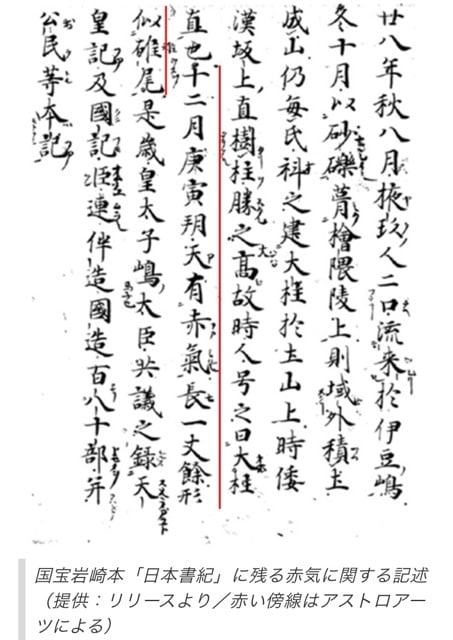 廿八年秋八月掖玖人二口流来於伊豆嶋
冬十月以砂礫葺檜隈陵上則域外積土
成山仍毎氏科之建大柱於土山上時倭
漢坂上直樹柱勝之高故時人号之曰大柱
直也十二月庚寅朔天有赤氣長一丈餘形
似雉尾是歳皇太子嶋大臣共議之録天
皇記及國記臣連伴造國造百八十部并
公民等本記
国宝岩崎本「日本書紀」に残る赤気に関する記述
（提供：リリースより／赤い傍線はアストロアー
ツによる）